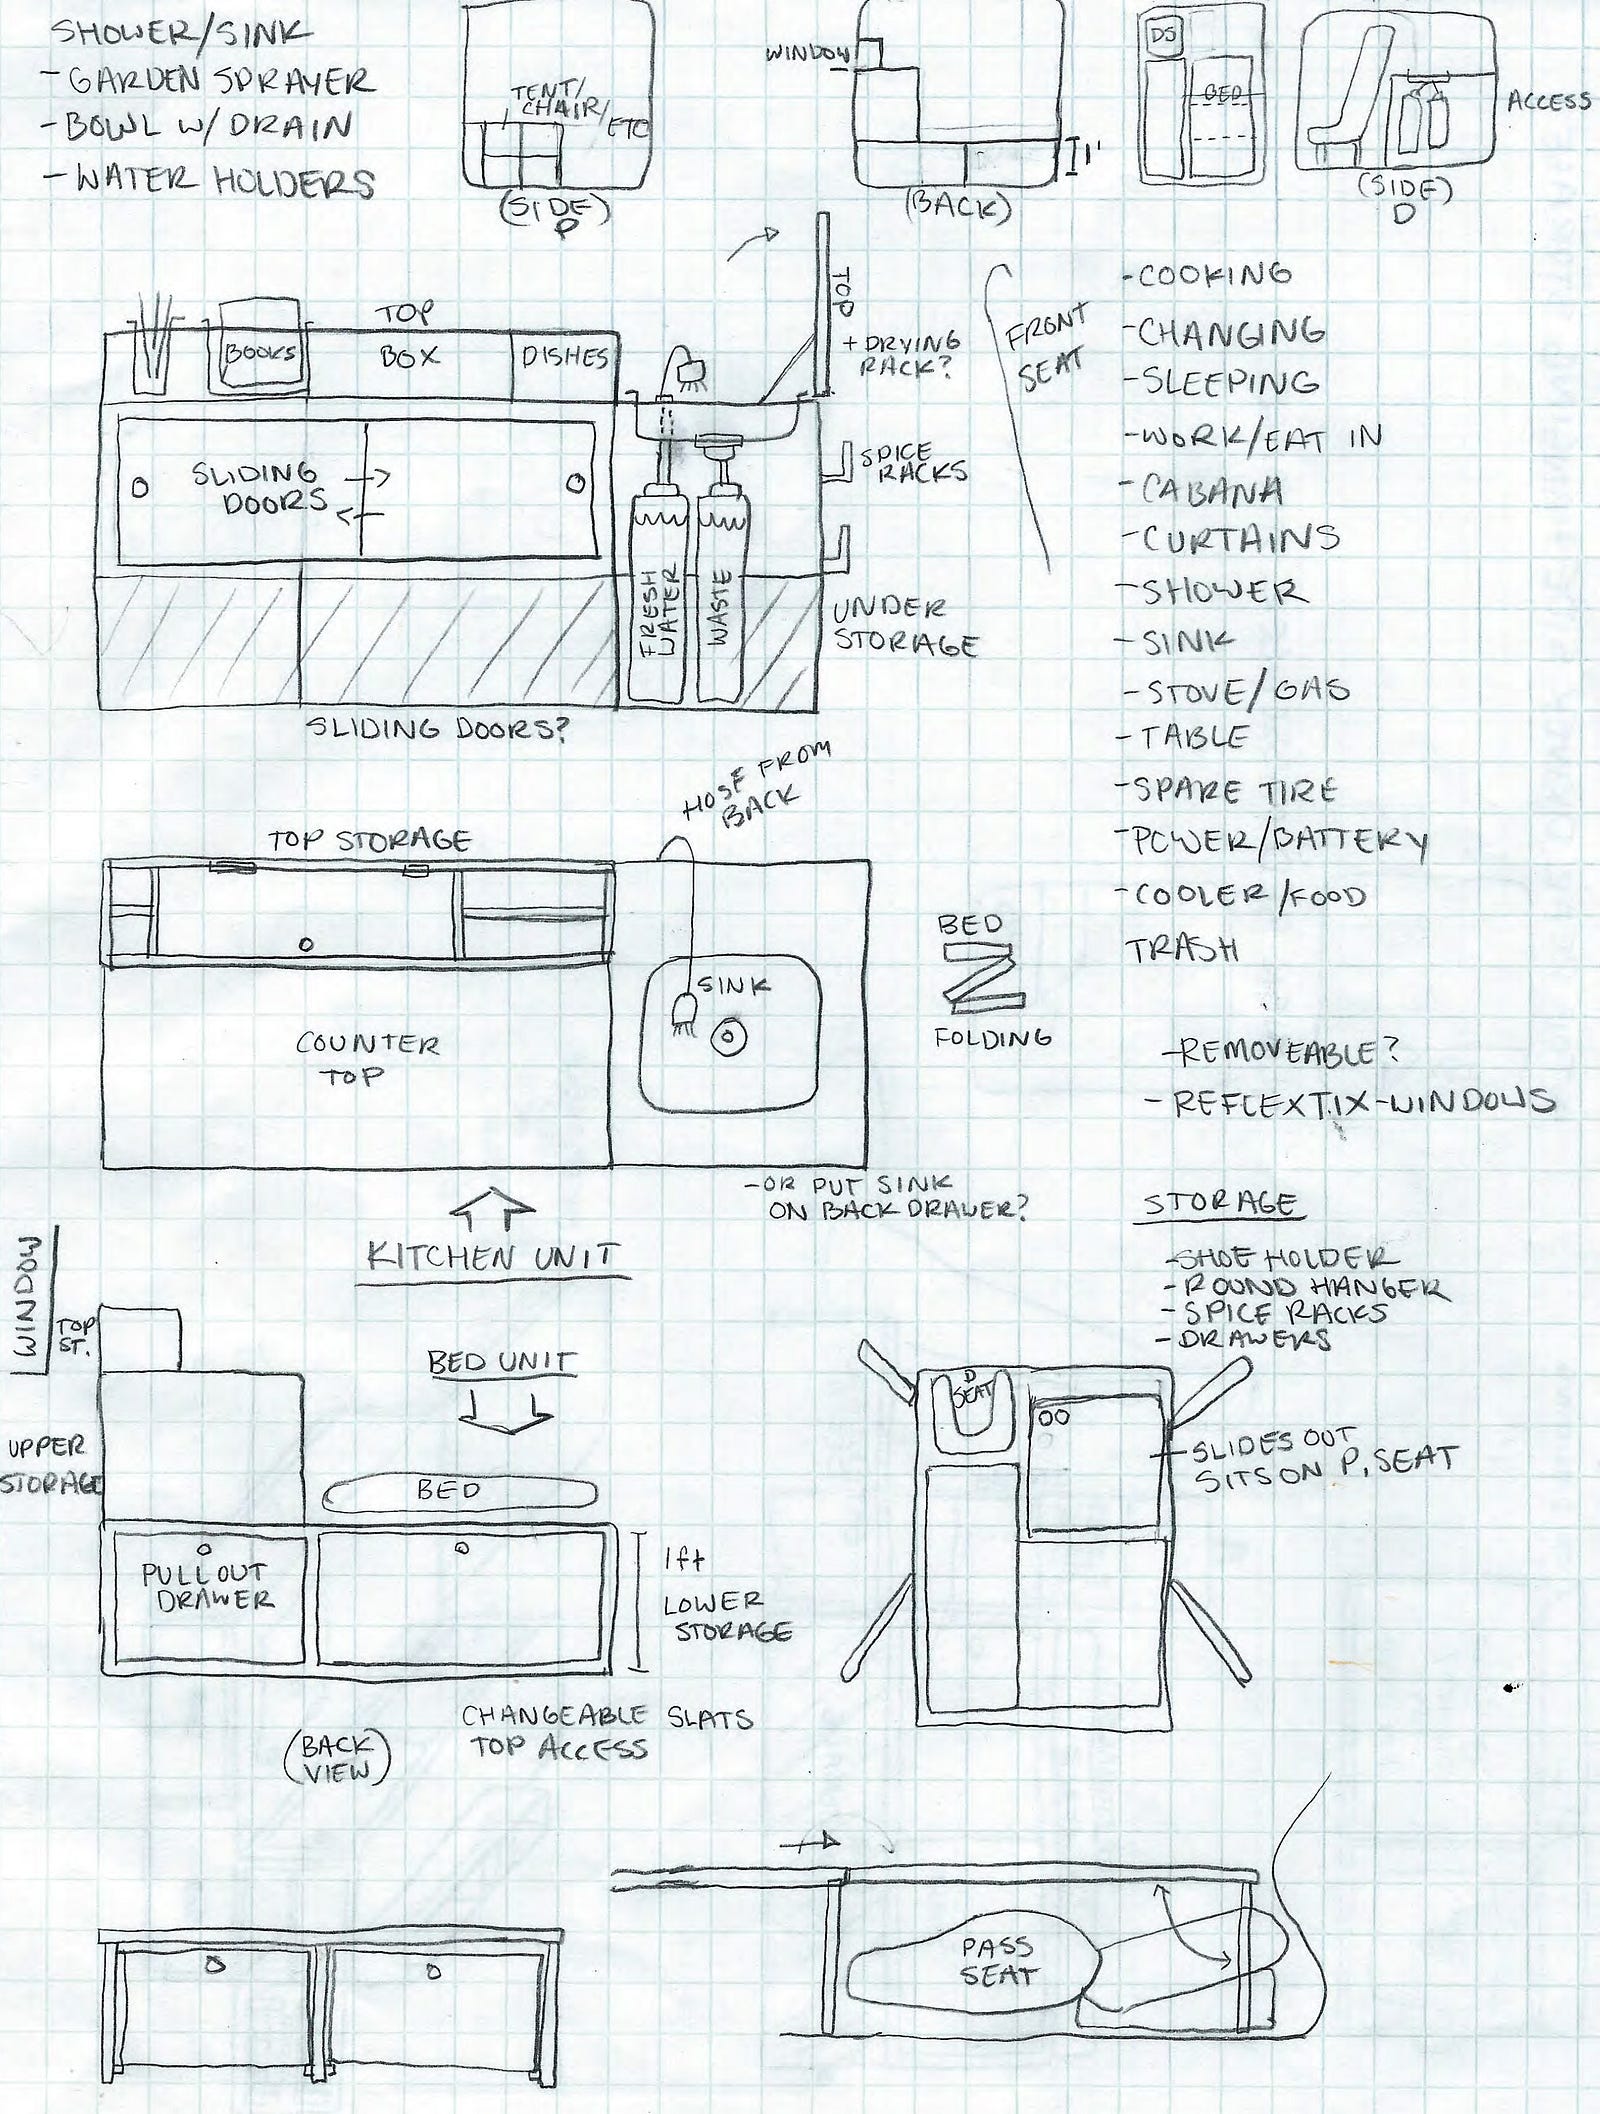 SHOWER/SINK
- GARDEN SPRAYER
- BOWL W/ DRAIN
- WATER HOLDERS
TENT/
CHAIR/
ETC
(SIDE)
P
WINDOW
1'
(BACK)
DS
BED
ACCESS
(SIDE)
D
TOP
BOOKS
BOX
DISHES
TOP
+ DRYING
RACK?
FRONT
SEAT
SLIDING
DOORS
SPICE
RACKS
FRESH
WATER
WASTE
UNDER
STORAGE
SLIDING DOORS?
- COOKING
- CHANGING
- SLEEPING
- WORK/EAT IN
- CABANA
- CURTAINS
- SHOWER
- SINK
- STOVE/GAS
- TABLE
- SPARE TIRE
- POWER/BATTERY
- COOLER/FOOD
TRASH
- REMOVEABLE?
- REFLEXTIX-WINDOWS
HOSE FROM
BACK
TOP STORAGE
SINK
COUNTER
TOP
BED
FOLDING
- OR PUT SINK
ON BACK DRAWER?
KITCHEN UNIT
STORAGE
- SHOE HOLDER
- ROUND HANGER
- SPICE RACKS
- DRAWERS
WINDOW
TOP
ST.
BED UNIT
UPPER
STORAGE
BED
PULL OUT
DRAWER
1ft
LOWER
STORAGE
D
SEAT
- SLIDES OUT
SITS ON P. SEAT
CHANGEABLE SLATS
TOP ACCESS
(BACK
VIEW)
PASS
SEAT